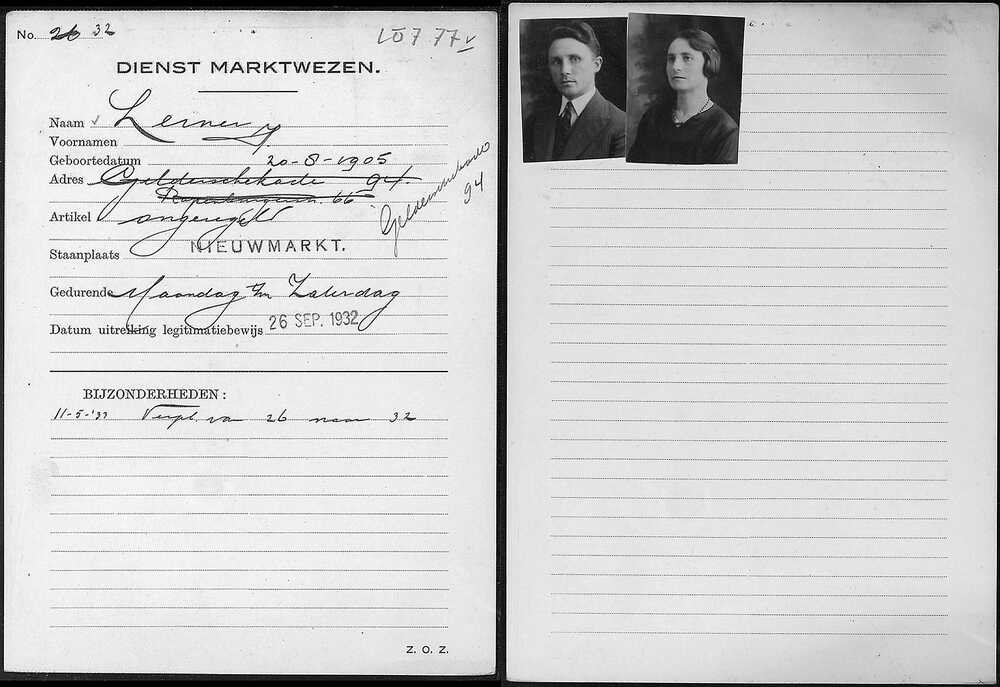 No. 26 32
10777 v
DIENST MARKTWEZEN.
Naam v Lerner, J.
Voornamen
Geboortedatum 20-8-1905
Adres Gelderschekade 94.
66
Gelderschekade
94
Artikel ongeregeld
NIEUWMARKT.
Staanplaats
Gedurende Maandag t/m Zaterdag
Datum uitreiking legitimatiebewijs 26 SEP. 1932
BIJZONDERHEDEN:
11-5-'33 Verpl. van 26 naar 32
Z. O. Z.